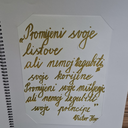 "Promijeni svoje
listove
ali nemoj izgubiti
svoje korijene
Promijeni svoje mišljenje
ali nemoj izgubiti
svoje principe"
Victor Hugo